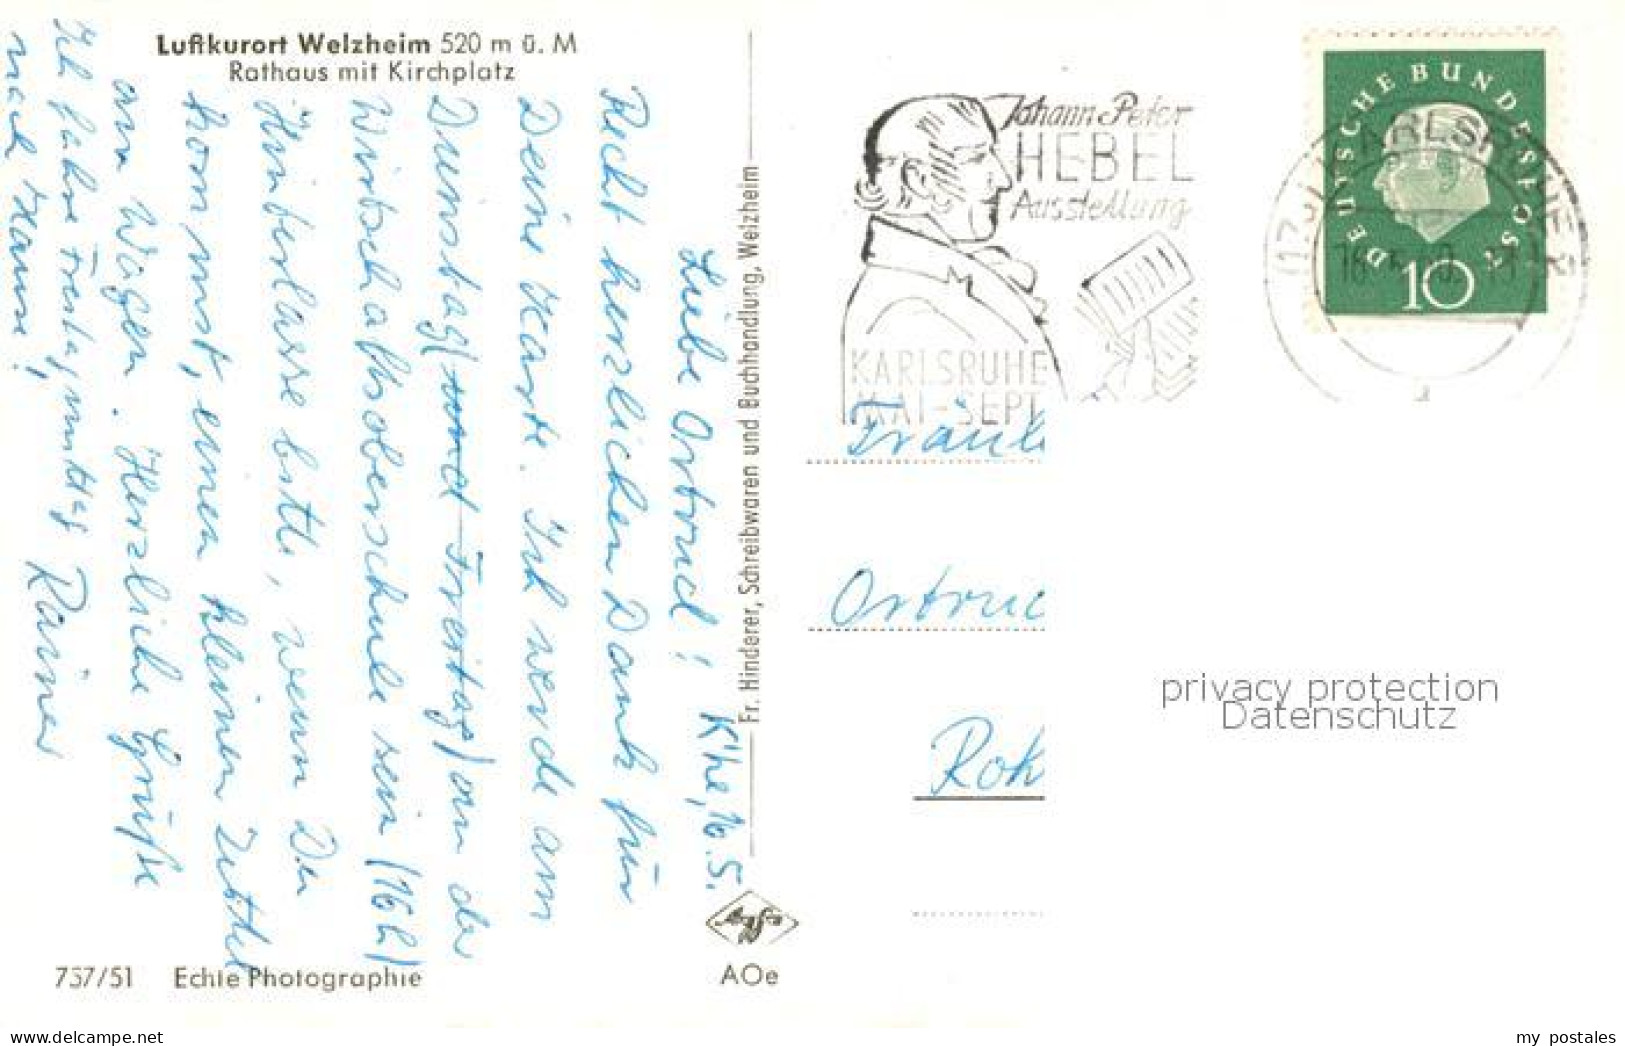 Luftkurort Welzheim 520 m ü. M
Rathaus mit Kirchplatz
K'he, 16.5.
Liebe Ortrud!
Recht herzlichen Dank für
Deine Karte. Ich werde am
Dienstag (und Freitag) an der
Wirtschaftsoberschule sein (16h)
Hinterlasse bitte, wenn Du
kommst, einen kleinen Zettel
am Wagen. Herzliche Grüße
Rainer
Ich fahre Freitagmittag
nach Hause!
Fr. Hinderer, Schreibwaren und Buchhandlung, Welzheim
757/51 Echte Photographie
Agfa
AOe
Johann-Peter
HEBEL
Ausstellung
KARLSRUHE
MAI-SEPT
DEUTSCHE BUNDESPOST
10
KARLSRUHE
Fräul
Ortruc
Roh
privacy protection
Datenschutz
delcampe.net
my_postales